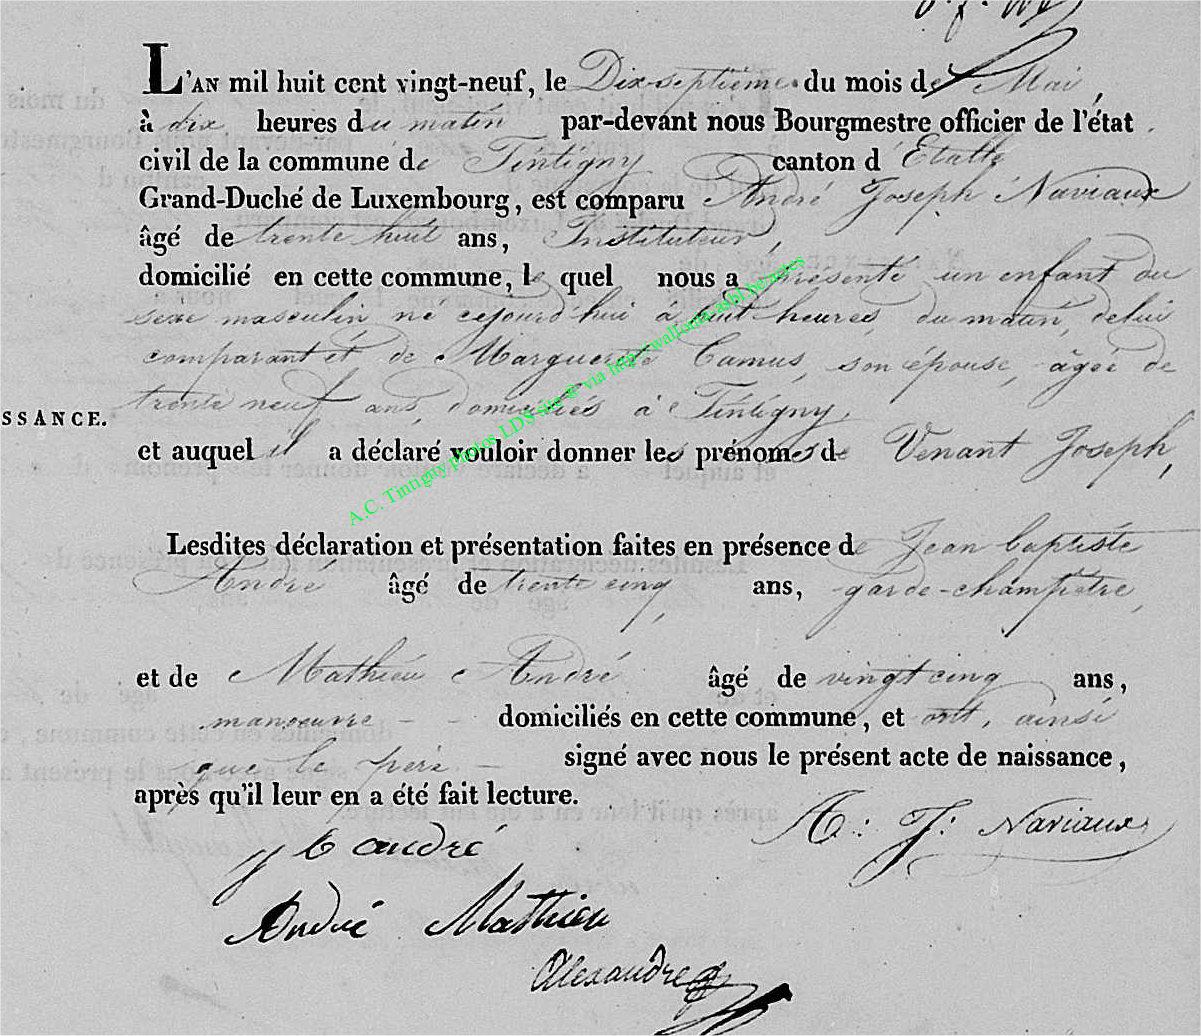 L'AN mil huit cent vingt-neuf, le Dix-septième du mois de Mai,
à dix heures du matin par-devant nous Bourgmestre officier de l'état
civil de la commune de Tintigny canton d'Etalle
Grand-Duché de Luxembourg, est comparu André Joseph Naviaux
âgé de trente huit ans, Instituteur,
domicilié en cette commune, le quel nous a présenté un enfant du
sexe masculin né cejourd'hui à huit heures du matin, de lui
comparant et de Marguerite Camus, son épouse, âgée de
trente neuf ans, domiciliés à Tintigny,
SSANCE.
et auquel il a déclaré vouloir donner les prénoms de Venant Joseph,
A.C. Tintigny photos LDS site © via http://wallonia-asbl.be/
Lesdites déclaration et présentation faites en présence de Jean baptiste
André âgé de trente cinq, ans, garde-champêtre,
et de Mathieu André âgé de vingt cinq ans,
manoeuvre - - domiciliés en cette commune, et ont, ainsi
que le père - signé avec nous le présent acte de naissance,
après qu'il leur en a été fait lecture.
A: J: Naviaux
J b andré
André Mathieu
Alexandre